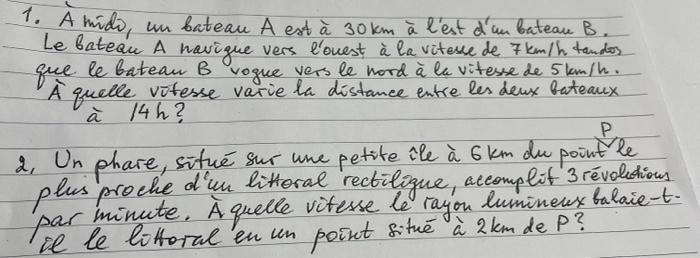 1. À midi, un bateau A est à 30 km à l'est d'un bateau B.
Le bateau A navigue vers l'ouest à la vitesse de 7 km/h tandos
que le bateau B vogue vers le nord à la vitesse de 5 km/h.
À quelle vitesse varie la distance entre les deux bateaux
à 14h?
P
2, Un phare, situé sur une petite île à 6 km du point le
plus proche d'un littoral rectiligne, accomplit 3 révolutions
par minute. À quelle vitesse le rayon lumineux balaie-t-
il le littoral en un point situé à 2 km de P?